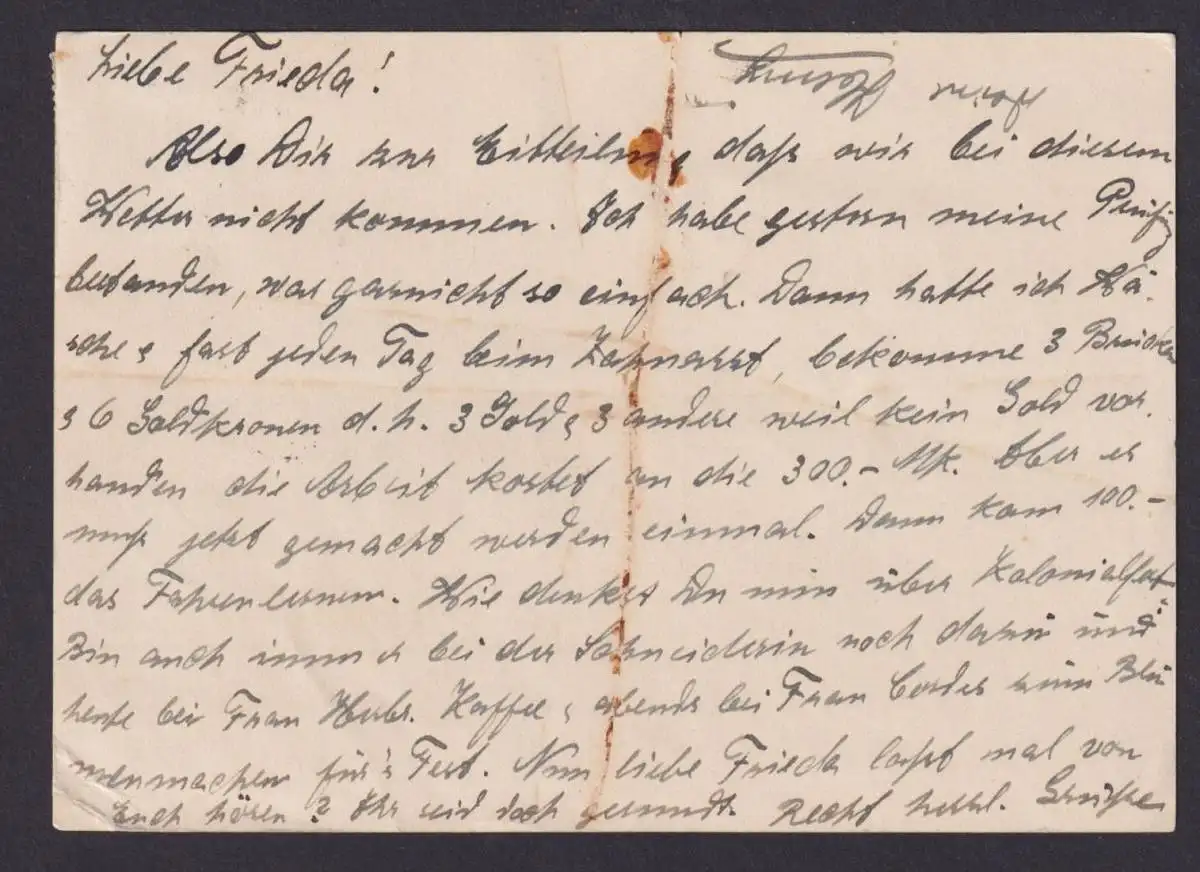 Liebe Frieda!
Also Dir zur Mitteilung daß wir bei diesem
Wetter nicht kommen. Ich habe gestern meine Prüfg
bestanden, war garnicht so einfach. Dann hatte ich Wä-
sche & fast jeden Tag beim Zahnarzt, bekomme 3 Brücken
& 6 Goldkronen d. h. 3 Gold & 3 andere weil kein Gold vor-
handen die Arbeit kostet an die 300.- Mk. Aber es
muß jetzt gemacht werden einmal. Dann kam 100.-
das Fahrenlernen. Wie denkst Du nun über Kolonialfest.
Bin auch immer bei der Schneiderin noch darin und
heute bei Frau Kaffee, & abends bei Frau zum Blu
menmachen für's Fest. Nun liebe Frieda laßt mal von
Euch hören? Ihr seid doch gesund. Recht herzl. Grüße